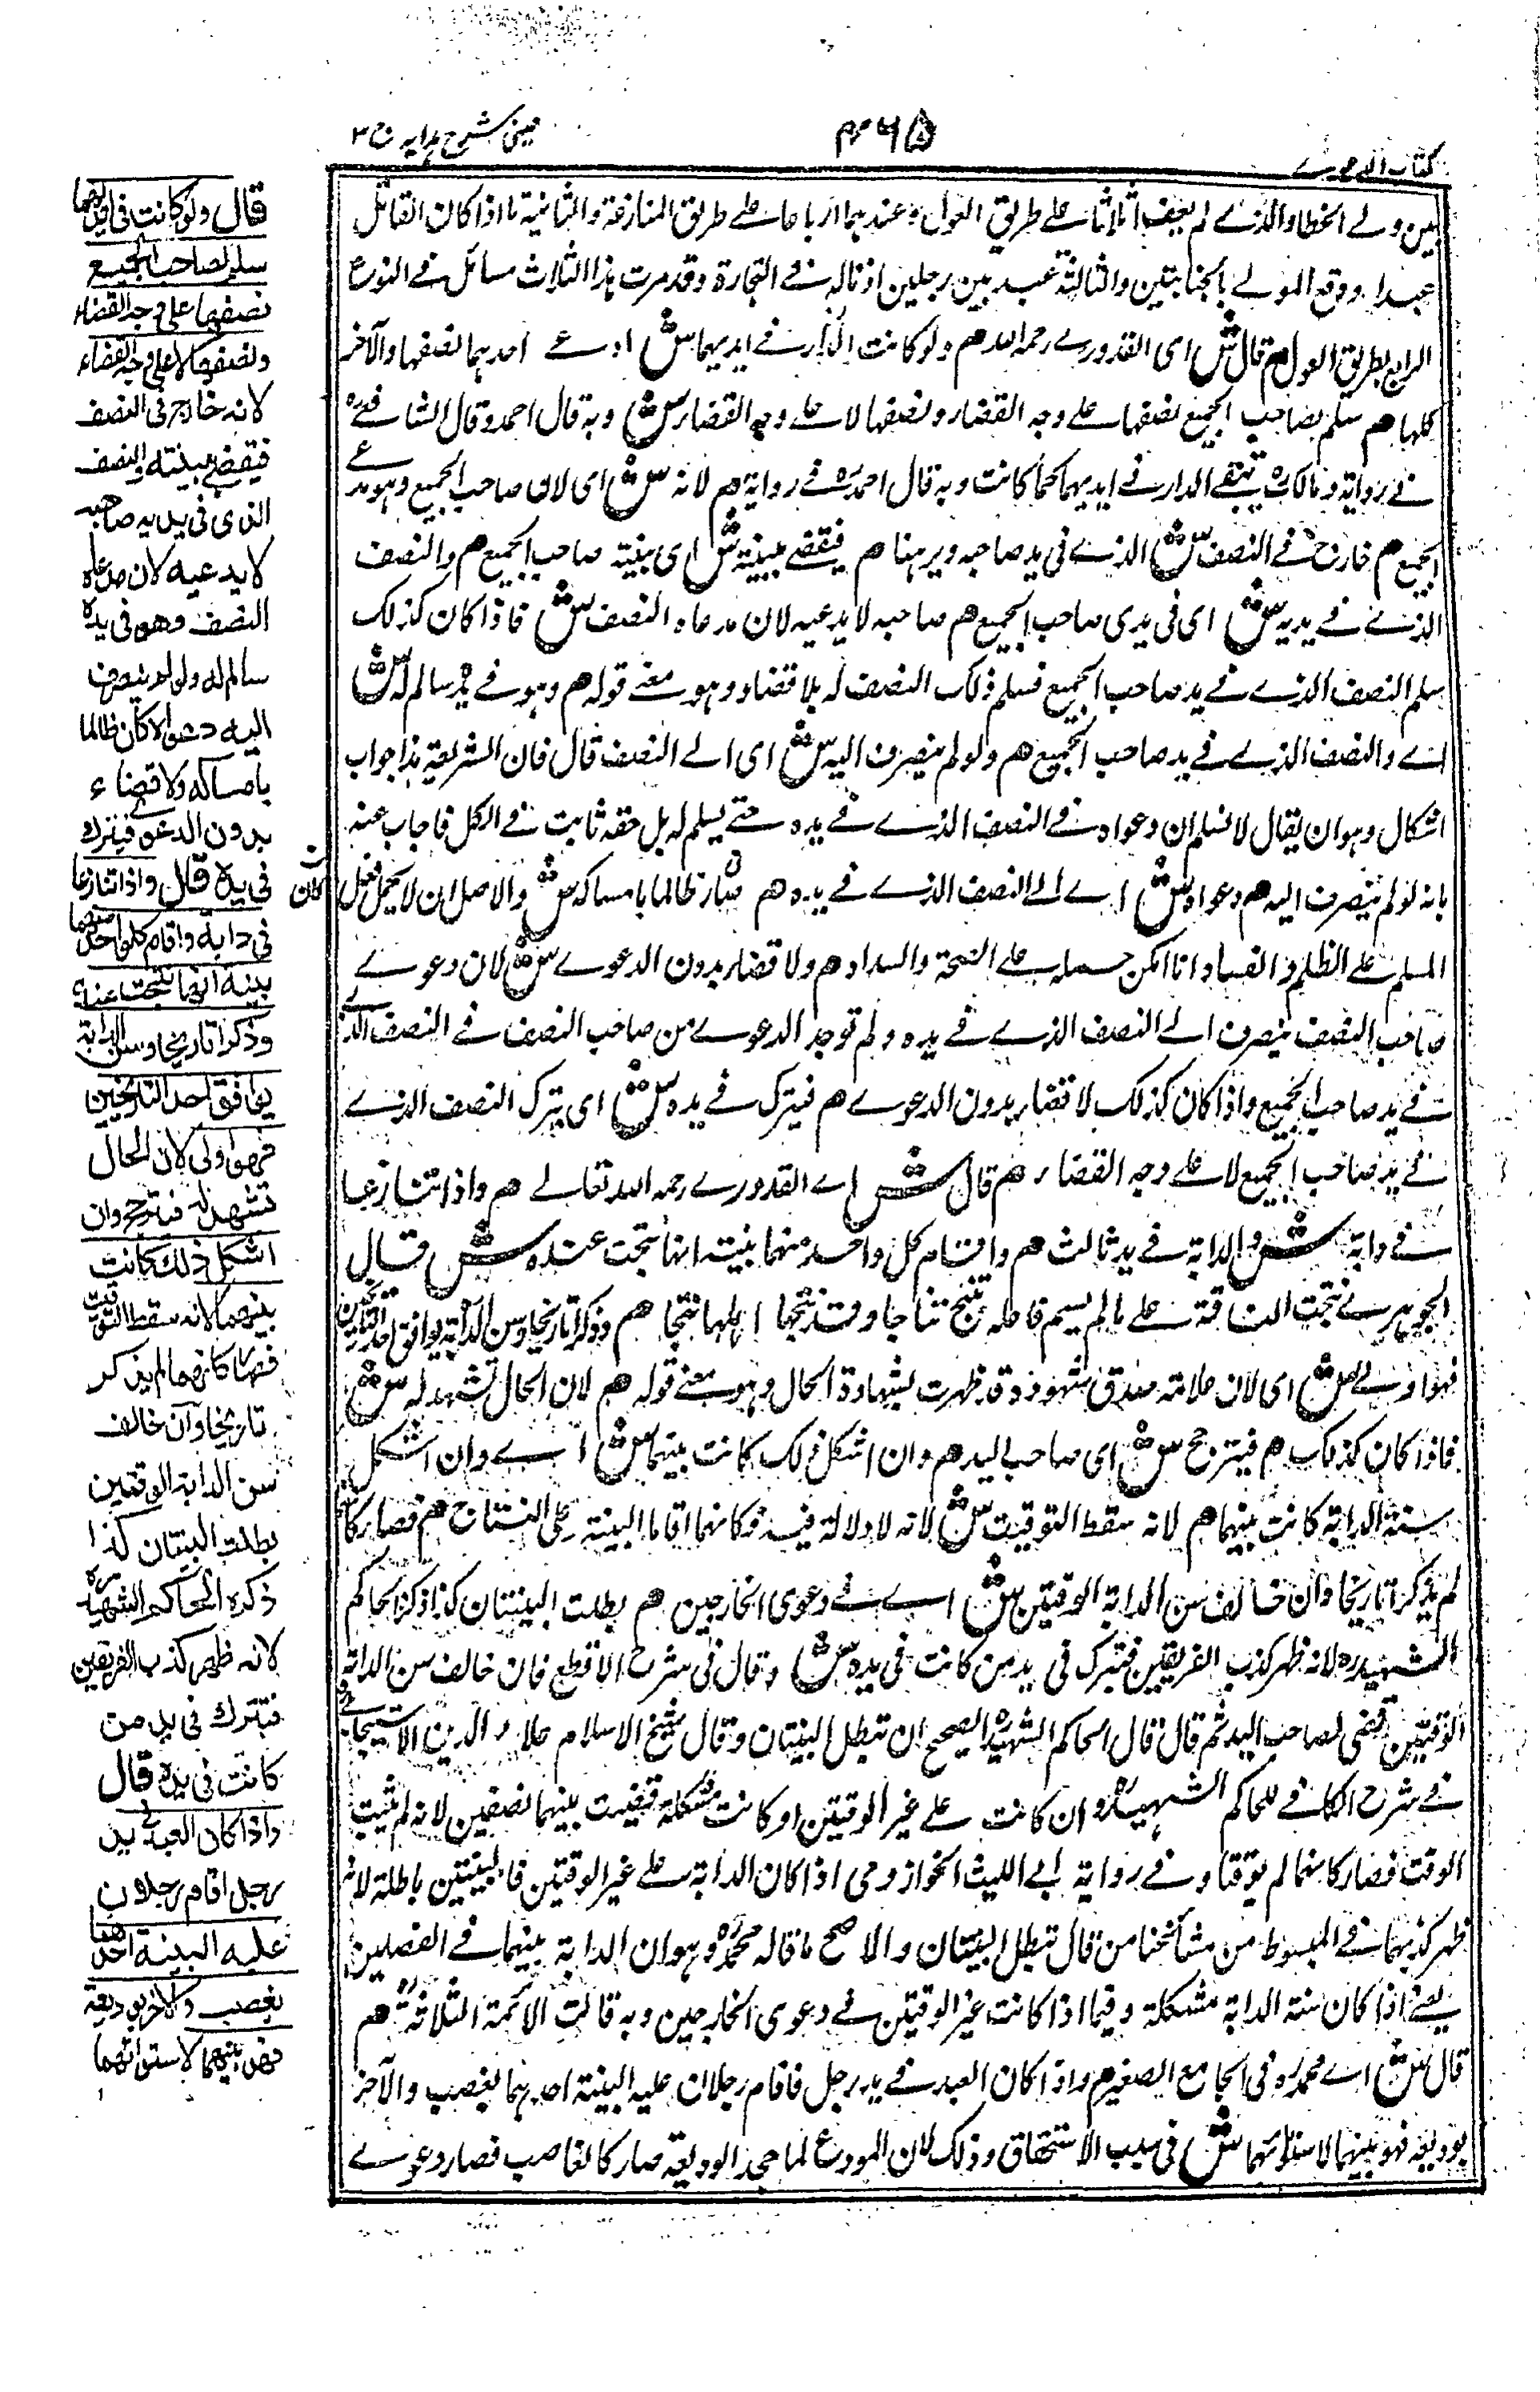 كتاب الدعوے
۴۶۵
عینی شرح ہدایہ ج ۳
بين ولے الخطا والذے لم يعف اثلاثا علے طريق العول وعندهما ارباعا علے طريق المنازعة والثانية ما اذا كان القاتل
عبدا ودفعه المولے بالجنايتين والثالثة عبد بين رجلين اذنا له فے التجارة وقد مرت هذا الثلاث مسائل فے النوع
الرابع بطريق العول هم قال ش اى القدورے رحمه الله هم ولو كانت الدار فے ايديهما ش ادعے احدهما نصفها والآخر
كلها هم سلم لصاحب الجميع نصفها علے وجه القضاء ونصفها لا علے وجه القضاء ش وبه قال احمد وقال الشافعے
فے رواية ومالك يبقے الدار فے ايديهما كما كانت وبه قال احمد فے رواية هم لانه ش اى لان صاحب الجميع وهو مدعے
الجميع هم خارج فے النصف ش الذے فى يد صاحبه هم فيقضے ببينته ش اى ببينة صاحب الجميع هم والنصف
الذے فے يديه ش اى فى يدى صاحب الجميع هم صاحبه لا يدعيه لان مدعاه النصف ش فاذا كان كذلك
سلم النصف الذے فے يد صاحب الجميع فسلم ذلك النصف له بلا قضاء وهو معنے قوله هم وهو فے يده سالم له ش
اے والنصف الذے فے يد صاحب الجميع هم ولو لم ينصرف اليه ش اى الے النصف قال فان الشريعة هذا جواب
اشكال وهو ان يقال لا نسلم ان دعواه فے النصف الذے فے يده حتے يسلم له بل حقه ثابت فے الكل فاجاب عنه
بانه لو لم ينصرف اليه هم دعواه ش اے الے النصف الذے فے يده هم كان ظالما بامساكه ش والاصل ان لا يحمل فعل
المسلم علے الظلم والفساد اذا امكن حمله علے الصحة والسداد هم ولا قضاء بدون الدعوے ش لان دعوے
صاحب النصف ينصرف الے النصف الذے فے يده ولم توجد الدعوے من صاحب النصف فے النصف الذے
فے يد صاحب الجميع واذا كان كذلك لا قضاء بدون الدعوے هم فيترك فے يده ش اى يترك النصف الذے
فے يد صاحب الجميع لا علے وجه القضاء هم قال ش اے القدورے رحمه الله تعالے هم واذا تنازعا
فے دابة ش والدابة فے يد ثالث هم واقام كل واحد منهما بينة انها نتجت عنده ش قال
الجوهرے نتجت الناقة علے ما لم يسم فاعله تنتج نتاجا وقد نتجها اهلها نتجا هم وذكرا تاريخا وسن الدابة يوافق احد التاريخين
فهو اولے ش اى لان علامة صدق شهوده قد ظهرت بشهادة الحال وهو معنے قوله هم لان الحال تشهد له ش
فاذا كان كذلك هم فيترجح ش اى صاحب اليد هم وان اشكل ذلك كانت بينهما ش اے وان اشكل
سنة الدابة كانت بينهما هم لانه سقط التوقيت ش لانه لا دلالة فيه وكانهما اقاما البينة على النتاج هم فصار كانهما
لم يذكرا تاريخا وان خالف سن الدابة الوقتين ش اے فے دعوى الخارجين هم بطلت البينتان كذا ذكره الحاكم
الشهيد لانه ظهر كذب الفريقين فيترك فى يد من كانت فى يده ش وقال فى شرح الاقطع فان خالف سن الدابة
الوقتين قضى لصاحب اليد ثم قال قال الحاكم الشهيد الصحيح ان تبطل البينتان وقال شيخ الاسلام علاء الدين الاسبيجابے
فے شرح الكافے للحاكم الشهيد وان كانت علے غير الوقتين او كانت مشكلة قضيت بينهما نصفين لانه لم يثبت
الوقت فصار كانهما لم يوقتا وفے رواية ابے الليث الخوازرمى اذا كان الدابة علے غير الوقتين فالبينتين باطلة لانه
ظهر كذبهما فے المبسوط من مشائخنا من قال تبطل البينتان والاصح ما قاله محمد وهو ان الدابة بينهما فے الفصلين
يعنے اذا كان سنة الدابة مشكلة وفيما اذا كانت غير الوقتين فے دعوى الخارجين وبه قالت الائمة الثلاثة هم
قال ش اے محمد فى الجامع الصغير هم واذا كان العبد فے يد رجل فاقام رجلان عليه البينة احدهما بغصب والآخر
بوديعة فهو بينهما لاستوائهما ش فى سبب الاستحقاق وذلك لان المودع لما جحد الوديعة صار كالغاصب فصار دعوے
قال ولو كانت فى ايديهما
سلم لصاحب الجميع
نصفها على وجه القضاء
ونصفها لا على وجه القضاء
لانه خارج فى النصف
فيقضے ببينته والنصف
الذى فى يديه صاحبه
لا يدعيه لان مدعاه
النصف وهو فى يده
سالم له ولو لم ينصرف
اليه دعواه كان ظالما
بامساكه ولا قضاء
بدون الدعوى فيترك
فى يده قال واذا تنازعا
فى دابة واقام كل واحد منهما
بينة انها نتجت عنده
وذكرا تاريخا وسن الدابة
يوافق احد التاريخين
فهو اولى لان الحال
تشهد له فيترجح وان
اشكل ذلك كانت
بينهما لانه سقط التوقيت
فصار كانهما لم يذكرا
تاريخا وان خالف
سن الدابة الوقتين
بطلت البينتان كذا
ذكره الحاكم الشهيد
لانه ظهر كذب الفريقين
فيترك فى يد من
كانت فى يده قال
واذا كان العبد فى يد
رجل اقام رجلان
عليه البينة احدهما
بغصب والآخر بوديعة
فهو بينهما لاستوائهما